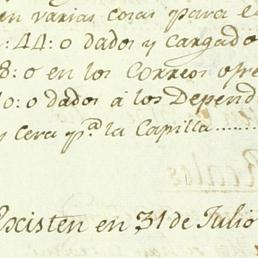 en varias cosas para el
: 44: o dados y Cargado
8: o en los Correos ofre
10: o dados á los Depend
y cera pª. la Capilla.......
Existen en 31 de Julio